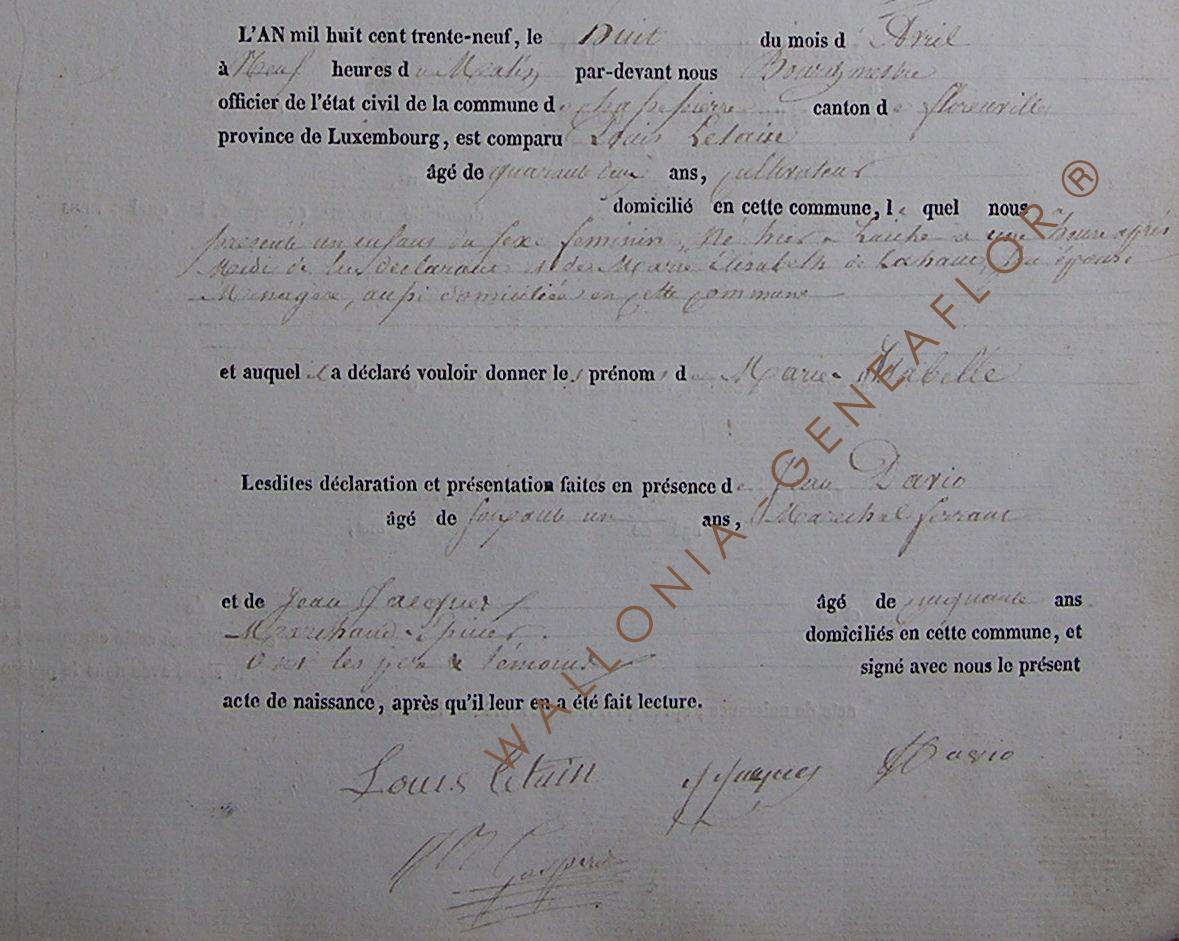 L'AN mil huit cent trente-neuf, le huit du mois d' Avril
à Neuf heures du Matin par-devant nous Bourgmestre
officier de l'état civil de la commune de Chassepierre canton de florenville
province de Luxembourg, est comparu Louis Letain
âgé de quarante deux ans, cultivateur
domicilié en cette commune, le quel nous
presenté un enfant du sexe feminin, Né hier a Laiche a une heure après
Midi de lui déclarant et de Marie Elisabeth de Lahaut, son épouse
Menagere, aussi domiciliée en cette commune
et auquel il a déclaré vouloir donner les prénoms de Marie Isabelle
Lesdites déclaration et présentation faites en présence de Jean Dario
âgé de soixante un ans, Marechal ferrant
et de Jean Jacques âgé de cinquante ans
Marchand Epicier domiciliés en cette commune, et
Ont les père & témoins signé avec nous le présent
acte de naissance, après qu'il leur en a été fait lecture.
Louis Letain J Jacques J Dario
WALLONIA-GENEAFLOR ®